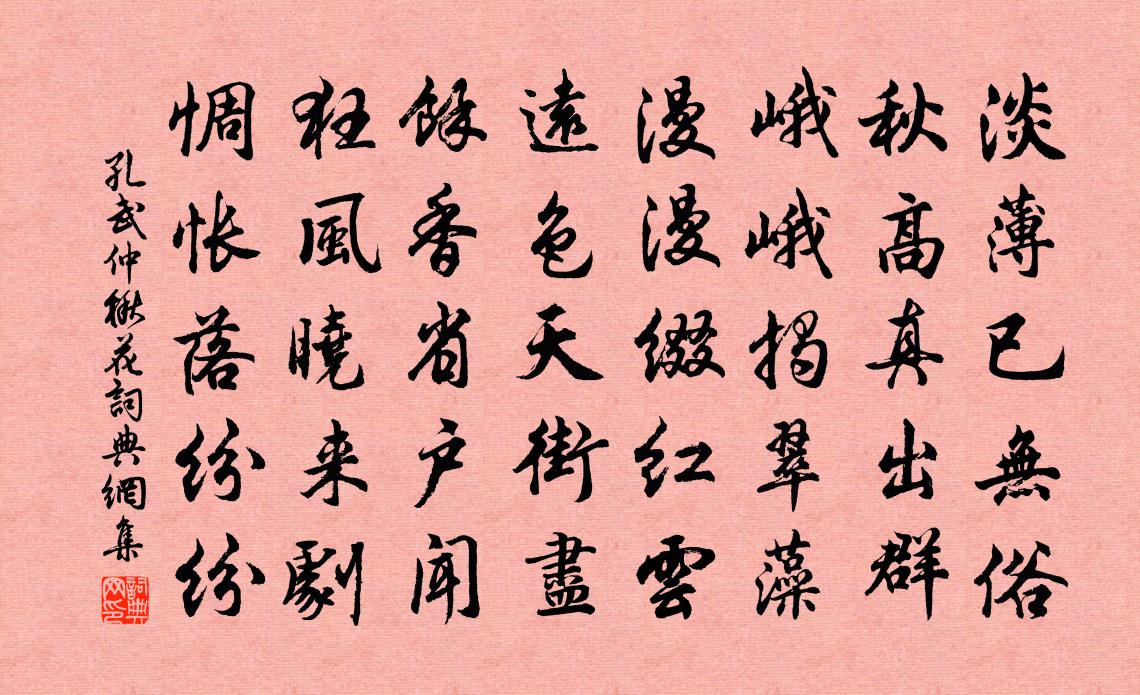 淡薄已無俗
秋高真出群
峨峨揭翠藻
漫漫綴红雲
遠色天街盡
餘香省户聞
狂風曉来劇
惆悵落紛紛
孔武仲楸花詞典網集
詞典网印